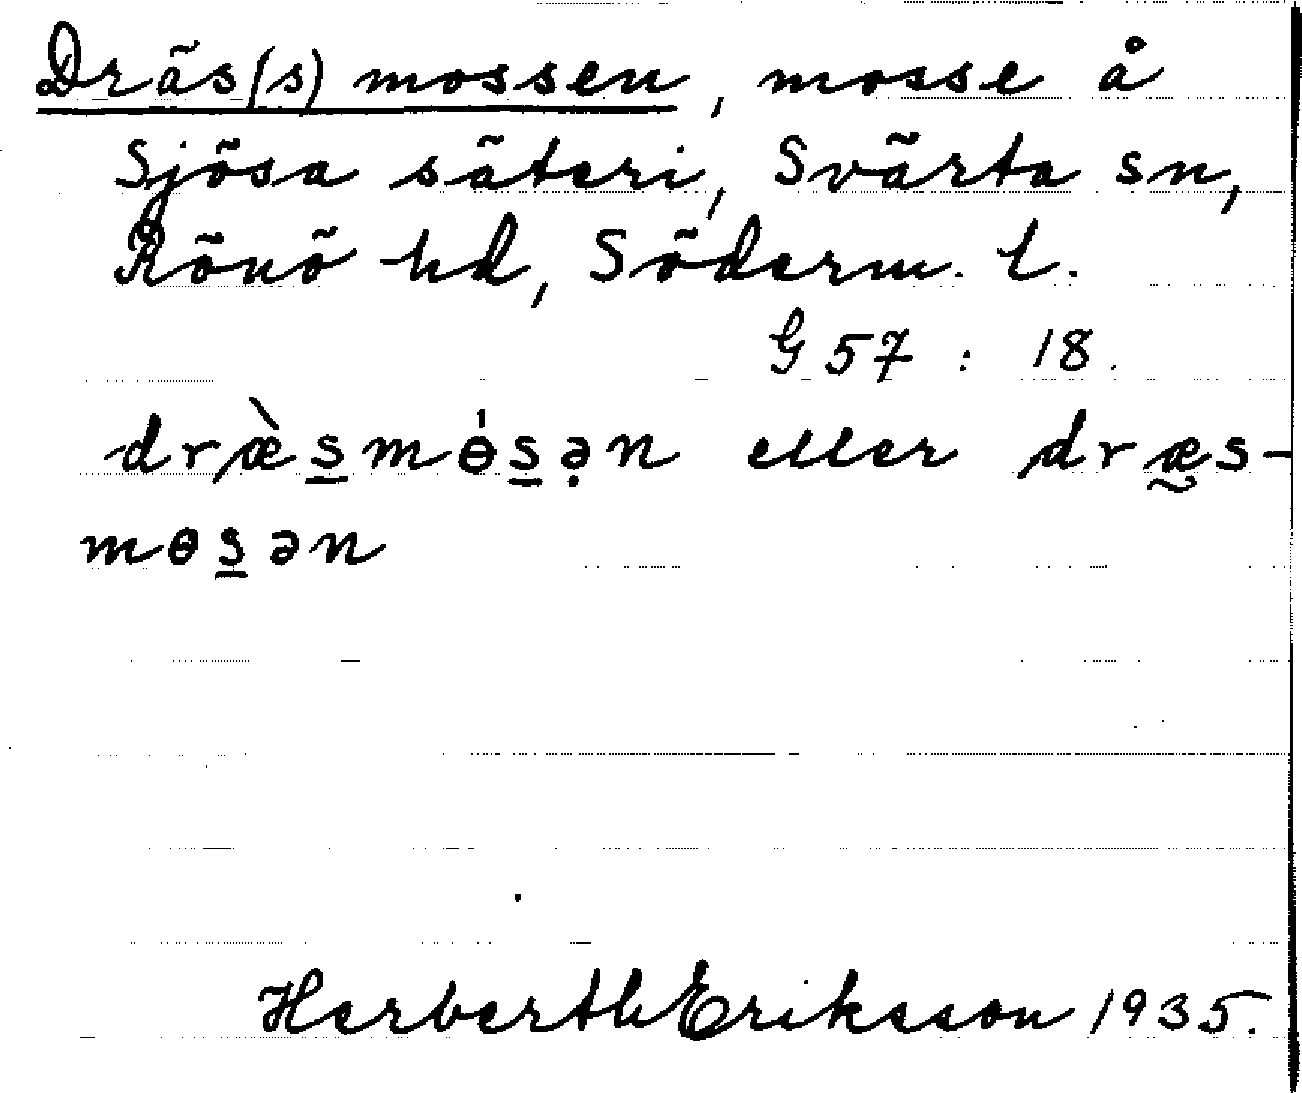 Dräs(s)mossen, mosse å
Sjösa säteri, Svärta sn,
Rönö hd, Söderm. l.
G 57 : 18.
dræ̀s̲mɵ́s̲ə̣n eller dræ̰s-
mɵs̲ən
Herberth Eriksson 1935.